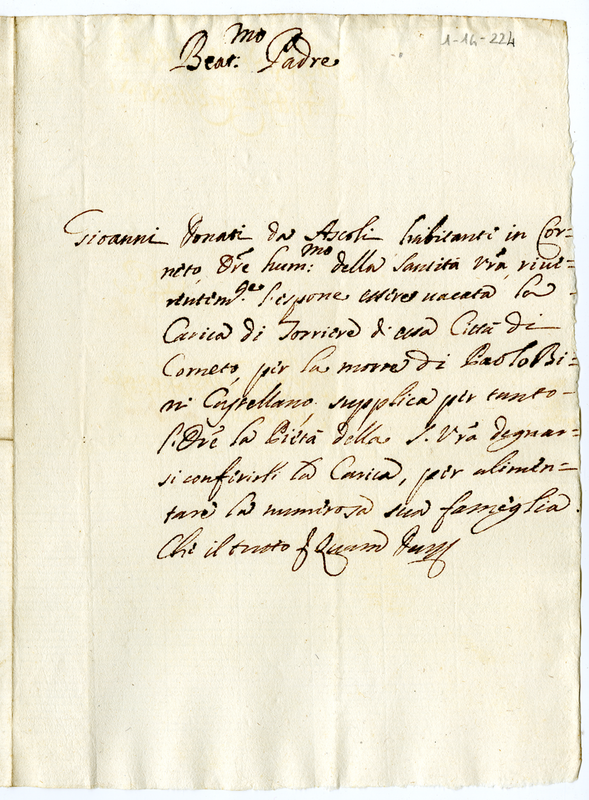 1-14-224
Beat.mo Padre
Gioanni Donati da Ascoli habitanti in Cor=
neto Ore hum:mo della Santità Vra, rive=
rentem.te l'espone essere vacata la
Carica di Torriere d'essa Città di
Corneto, per la morte di Paolo Bi=
ni Castellano. supplica per tanto
l'Ore la Pietà della S. Vra degnar=
si conferirli la Carica, per alimen=
tare la numerosa sua fameglia.
Che il tutto Quam Deus